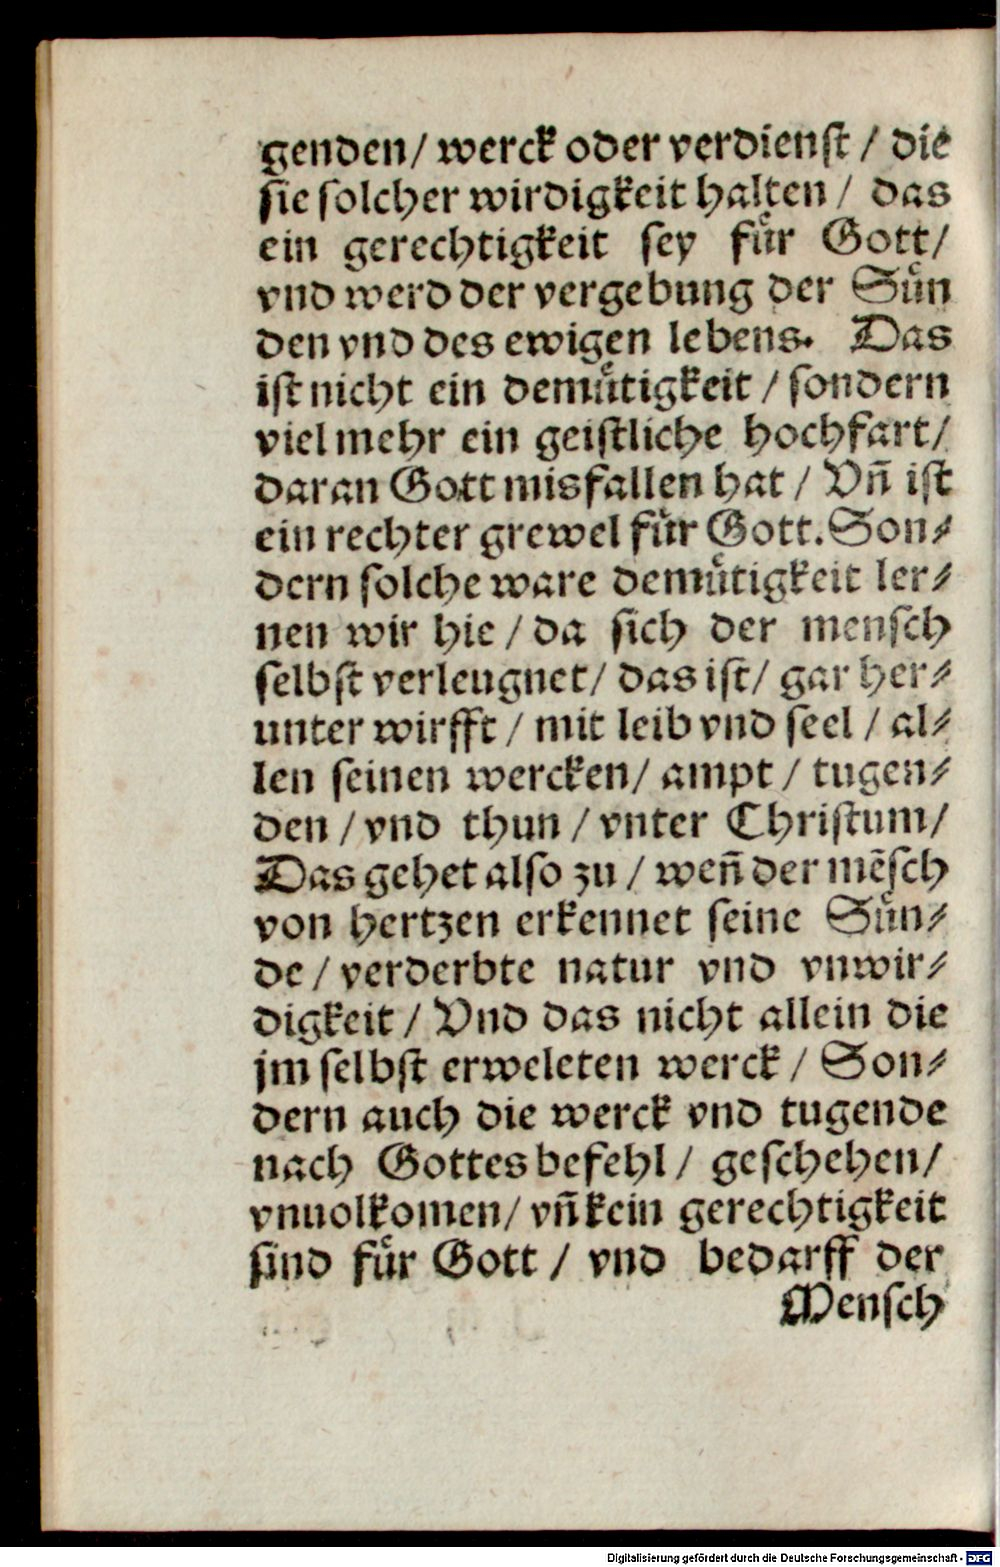 genden/ werck oder verdienſt / die
ſie ſolcher wirdigkeit halten / das
ein gerechtigkeit ſey fuͤr Gott/
vnd werd der vergebung der Suͤn
den vnd des ewigen lebens. Das
iſt nicht ein demuͤtigkeit / ſondern
viel mehr ein geiſtliche hochfart/
daran Gott misfallen hat / Vñ iſt
ein rechter grewel fuͤr Gott. Son⸗
dern ſolche ware demuͤtigkeit ler⸗
nen wir hie / da ſich der menſch
ſelbſt verleugnet/ das iſt/ gar her⸗
unter wirfft / mit leib vnd ſeel / al⸗
len ſeinen wercken/ ampt / tugen⸗
den / vnd thun / vnter Chriſtum/
Das gehet alſo zu / weñ der mẽſch
von hertzen erkennet ſeine Suͤn⸗
de / verderbte natur vnd vnwir⸗
digkeit / Vnd das nicht allein die
jm ſelbſt erweleten werck / Son⸗
dern auch die werck vnd tugende
nach Gottes befehl / geſchehen/
vnuolkomen/ vñ kein gerechtigkeit
ſind fuͤr Gott / vnd bedarff der
Menſch
Digitalisierung gefördert durch die Deutsche Forschungsgemeinschaft - DFG